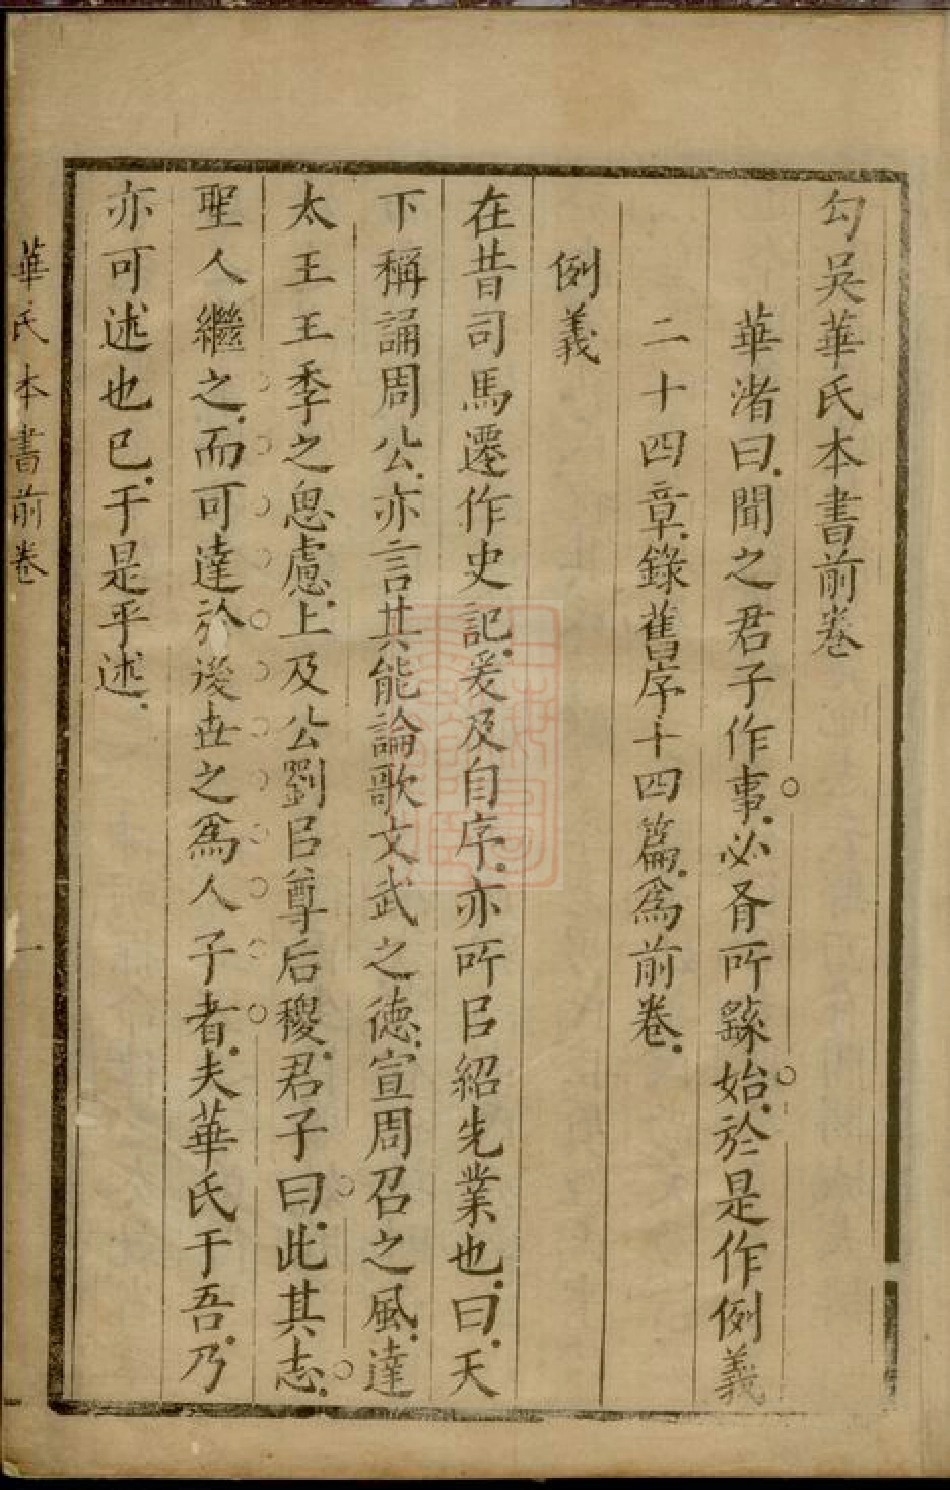 勾吳華氏本書前卷
華渚曰聞之君子作事必胥所繇始於是作例義
二十四章錄舊序十四篇爲前卷
例義
在昔司馬遷作史記爰及自序亦所㠯紹先業也曰天
下稱誦周公亦言其能論歌文武之德宣周召之風達
太王王季之思慮上及公劉㠯尊后稷君子曰此其志
聖人繼之而可達於後世之爲人子者夫華氏于吾乃
亦可述也已于是乎述
華氏本書前卷
一